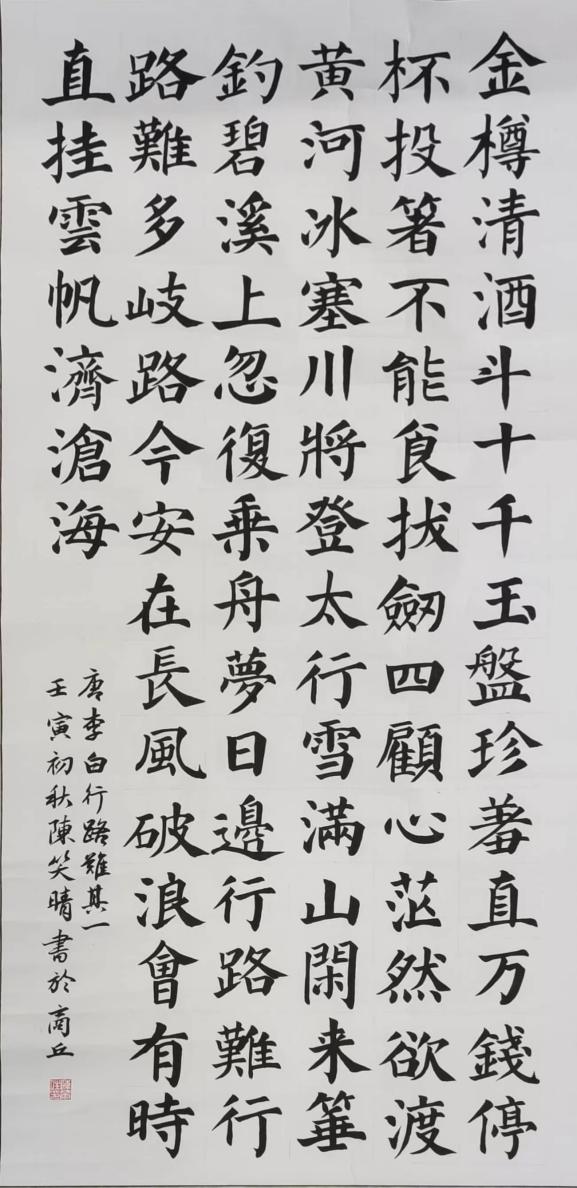 金樽清酒斗十千玉盤珍羞直万錢停
杯投箸不能食拔劔四顧心茫然欲渡
黄河冰塞川將登太行雪滿山閑来箠
釣碧溪上忽復乗舟夢日邊行路難行
路難多岐路今安在長風破浪會有時
直挂雲帆濟滄海
唐李白行路難其一
壬寅初秋陳笑晴書於商丘